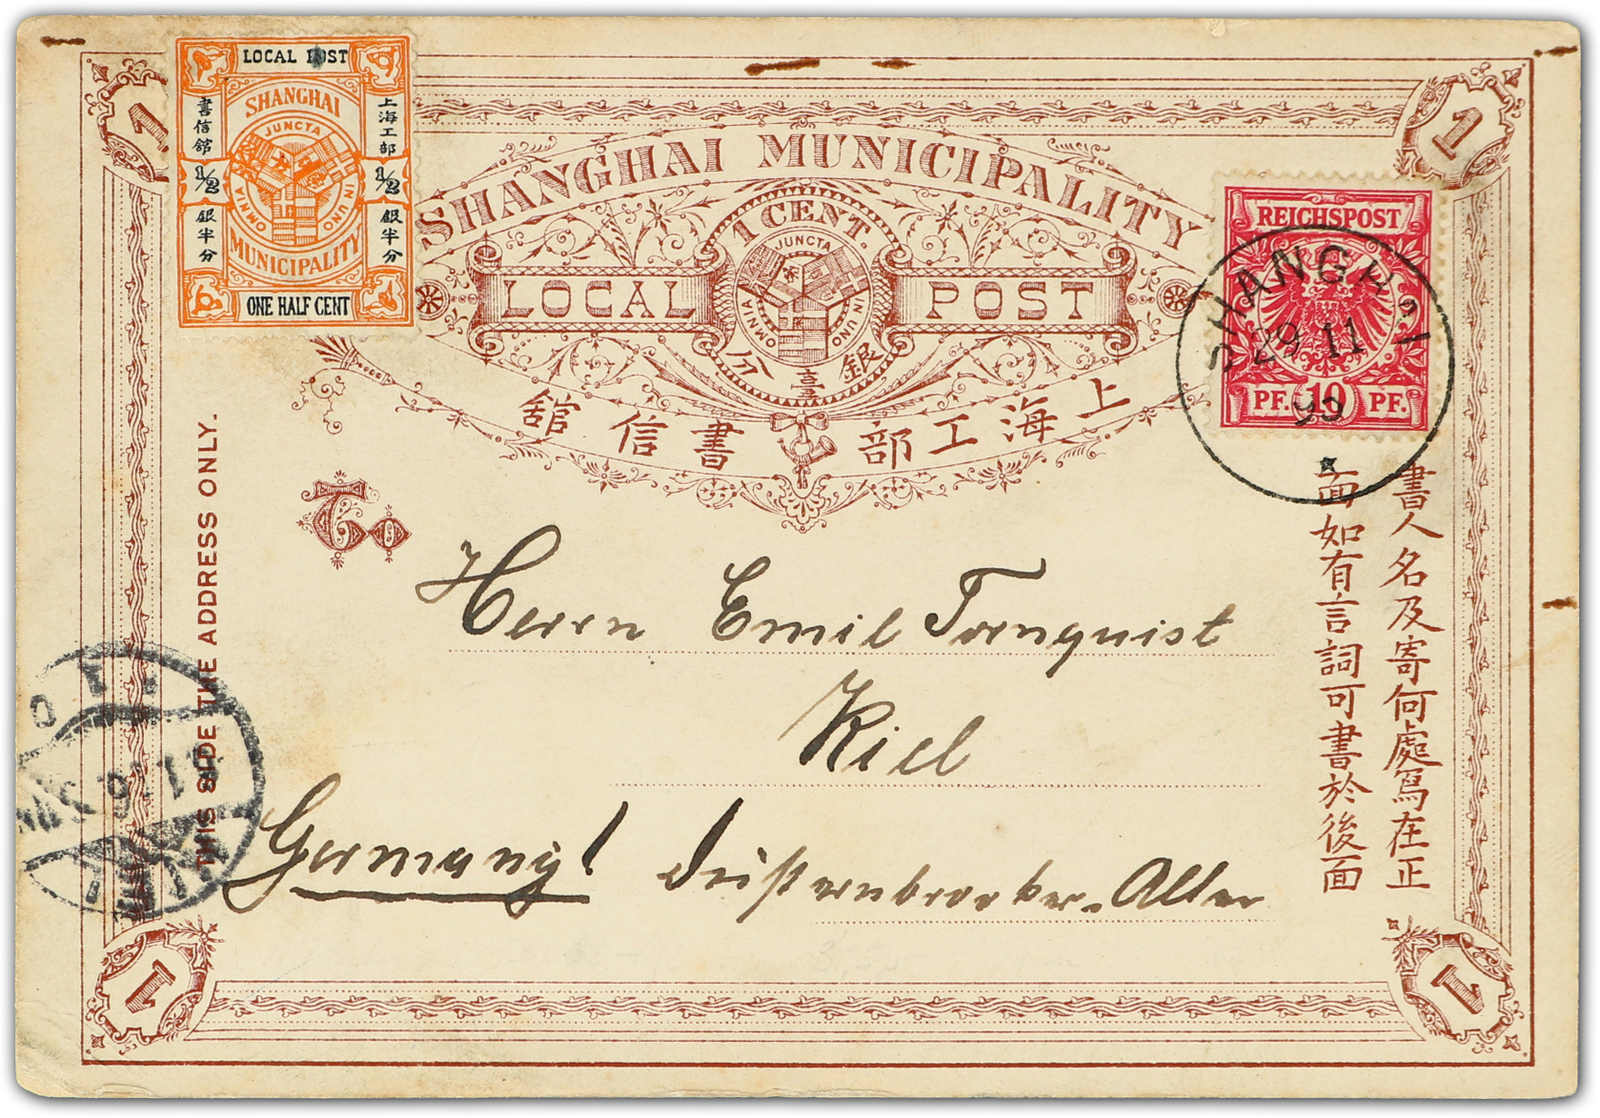 LOCAL POST
SHANGHAI
JUNCTA IN UNO OMNIA
MUNICIPALITY
ONE HALF CENT
上海工部
書信館
1/2
1/2
銀半分
銀半分
SHANGHAI MUNICIPALITY
1 CENT.
LOCAL POST
JUNCTA IN UNO OMNIA
銀壹分
上海工部書信館
1
1
1
1
REICHSPOST
PF. 10 PF.
SHANGHAI
29 11
To
THIS SIDE THE ADDRESS ONLY.
書人名及寄何處寫在正
面如有言詞可書於後面
Herrn Emil Tornquist
Kiel
Germany!
Düsternbrooker-Allee